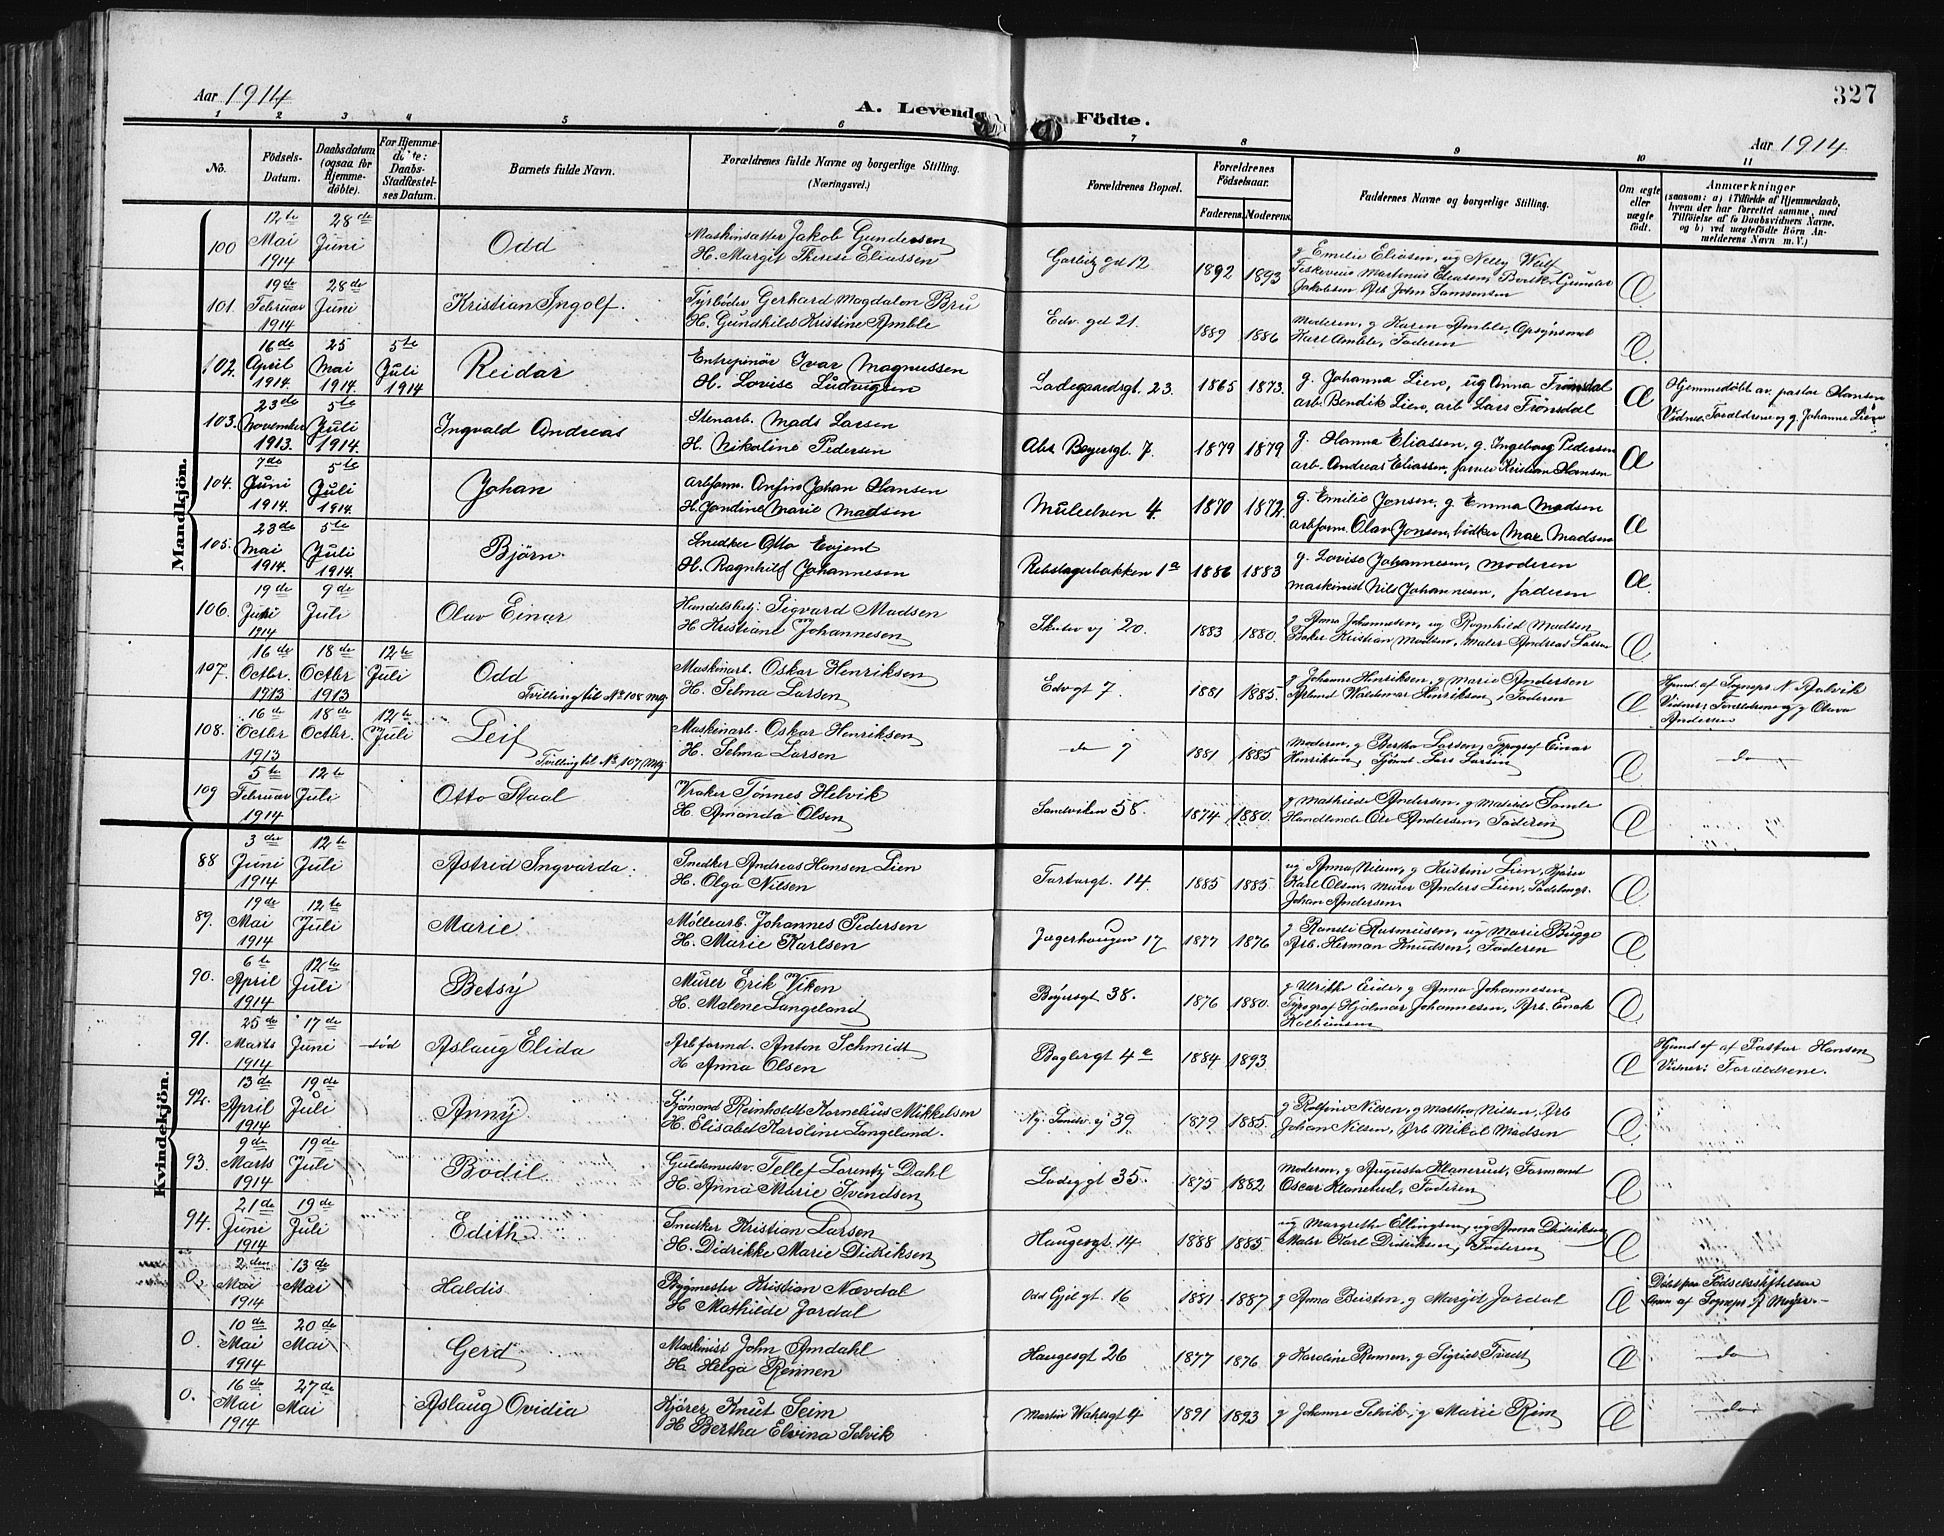 Aar 1914
A. Levende Födte.
327
Aar 1914
1 2 3 4 5 6 7 8 9 10 11
No. Födsels-Datum. Daabsdatum (ogsaa for Hjemmedöbte). For Hjemmedöbte: Daabs-Stadfæstelses Datum. Barnets fulde Navn. Forældrenes fulde Navne og borgerlige Stilling. (Næringsvei.) Forældrenes Bopæl. Forældrenes Födselsaar. Faderens. Moderens. Faddernes Navne og borgerlige Stilling. Om ægte eller uægte födt. Anmærkninger (saasom: a) i Tilfælde af Hjemmedaab, hvem der har forrettet samme, med Tilföielse af to Daabsvidners Navne. og b) ved uægtefödte Börn Anmelderens Navn m. V.)
Mandkjön.
100 12te Mai 1914 28de Juni Odd
Jakob Gundersen
H. Margit Therese Eliassen
gd 12 1892 1893
g Emilie Eliasen, ug Nelly
Martinus Eliasen
Jakobsen Arb John Samsonsen
Æ
101. 19de Februar 1914 28de Juni Kristian Ingolf.
Fyrböder Gerhard Magdalon Bru
H. Gundhild Kristine Amble
Edv. gd 21. 1889 1886
Moderen, g Karen Amble, Opsynsmd
Karl Amble, Faderen
Æ
102. 16de April 1914. 25 Mai 1914. 5te Juli 1914 Reidar
Entrepenör Ivar Magnussen
H. Lovise Ludvigsen
Ladegaardsgt. 23. 1865 1873.
g. Johanna Lien, ug Anna Frönsdal
arb. Bendik Lien, arb Lars Frönsdal
Æ
Hjemmedöbt av pastor Hansen
Vidner Forældrene og g Johanne Lien
103. 23de November 1913. 5te Juli 1914. Ingvald Andreas
Stenarb. Mads Larsen
H. Nikoline Pedersen
Abs Beyersgt. 7. 1879 1879
g. Hanna Eliassen, g Ingeborg Pedersen
arb. Andreas Eliassen, Kristian Hansen
Æ
104. 7de Juni 1914. 5te Juli 1914. Johan
Arbform. Anfin Johan Hansen
H. Jondine Marie Madsen
Muleelven 4. 1870 1872.
g. Emilie Jonsen, g. Emma Madsen
arbform. Olav Jonsen, Max Madsen
Æ
105. 23de Mai 1914. 5te Juli 1914. Björn.
Snedker Otto Evjent
H. Ragnhild Johannesen
Rebslagerbakken 1a 1886 1883
g. Lovise Johannesen, moderen
maskinist Nils Johannesen, faderen
Æ.
106. 19de Juni 1914 9de Juli Olav Einar
Handelsbetj: Sigvard Madsen
H Kristiane Johannesen
Skutev vj 20. 1883 1880.
g Anna Johannesen, ug Ragnhild Madsen
Baker Kristian Madsen, Maler Andreas Larsen
Æ
107. 16de Octbr. 1913 18de Octbr 1913 12te Juli Odd
Tvilling til No 108 Mg
Maskinarb. Oskar Henriksen
H. Selma Larsen
Edvgt 7. 1881 1885.
g Johanne Henriksen, g Marie Andersen
Valdemar Henriksen, Faderen
Æ
Hjmd af Sognepr N Dalvik
Vidner; Forældrene og g Olava
Andersen
108. 16de Octbr 1913 18de Octbr. 12te Juli Leif
Tvilling til No 107 Mg
Maskinarb. Oskar Henriksen
H. Selma Larsen
do 7 1881 1885
Moderen, g Bertha Larsen, Typograf Einar
Henriksen, Sjömd. Lars Larsen
Æ
do
109 5te Februar 1914 12te Juli Otto Staal
Vraker Tönnes Helvik
H Amanda Olsen
Sandviken 58. 1874 1880.
g Mathilde Andersen, g Matilde
Handlende Ole Andersen, Faderen
Æ
Kvindekjön.
88 3die Juni 1914 12te Juli Astrid Ingvarda.
Snedker Andreas Hansen Lien
H. Olga Nilsen
14. 1885 1885.
ug Anna Nilsen, g Kristine Lien,
Karl Olsen, Murer Anders Lien,
Johan Andersen
Æ
89. 19de Mai 1914 12te Juli Marie
Möllearb. Johannes Pedersen
H. Marie Karlsen
Jægerhaugen 17 1877 1876
g Randi Rasmussen, ug Marie Bugge
Arb. Herman Knudsen, Faderen
Æ
90. 6te April 1914 12te Juli Betsy
Murer Erik Viken
H. Malene Langeland
Böyersgt 38. 1876 1880.
g Ulrikke Eide, g Anna Johannesen
Typograf Hjalmar Johannesen, Arb. Enok
Æ
91. 25de Marts 1914 17de Juni död Aslaug Elida
Arbformd. Anton Schmidt
H Anna Olsen
Baglergt 4e 1884 1893
Æ
Hjmd af af Pastor Hansen
Vidner: Forældrene.
92. 13de April 1914 19de Juli Anny
Sjömand Reinholdt Kornelius Mikkelsen
H. Elisabet Karoline Langeland.
Ny. Sandv. vj 39 1879 1885.
g Rolfine Nilsen, g Martha Nilsen, Arb
Johan Nilsen, Arb Mikal Madsen
Æ
93. 9de Marts 1914 19de Juli Bodil
Guldsmedsv. Tellef Lorentz Dahl
H. Anna Marie Svendsen
35. 1875 1882
Moderen, g Augusta Klanerud, Formand
Oscar Klanerud, Faderen
Æ
94. 21de Juni 1914 19de Juli Edith
Snedker Kristian Larsen
H. Didrikke Marie Didriksen
Haugesgt. 14 1888 1885.
ug Margrethe Ellingsen, ug Anna Didriksen
Maler Karl Didriksen, Faderen
Æ
0. 2den Mai 1914 13de Mai Haldis
Bygmester Kristian Nævdal
H Mathilde Jordal
16 1881 1887
g Anna Beisten, g Margit Jordal
Æ
Döbt paa Födselsstiftelsen
af Sognepr Meyer
0. 10de Mai 1914 20de Mai Gerd
Maskinist John Amdahl
H. Helga Rennen
Haugesgt 26 1877 1876.
g Karoline Rennen, g Sigrid Tveit
Æ
do
0. 16de Mai 1914 27de Mai Aslaug Ovidia
Kjörer Knut Seim
H Bertha Elvina Selvik
Martin Vahlsgt 4 1891 1893
g Johanne Selvik, g Marie Reim
Æ
do